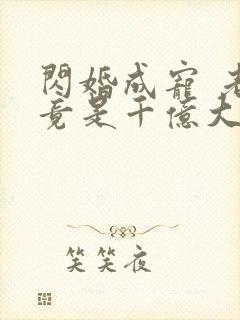 閃婚成寵 老
竟是千億大
笑笑夜